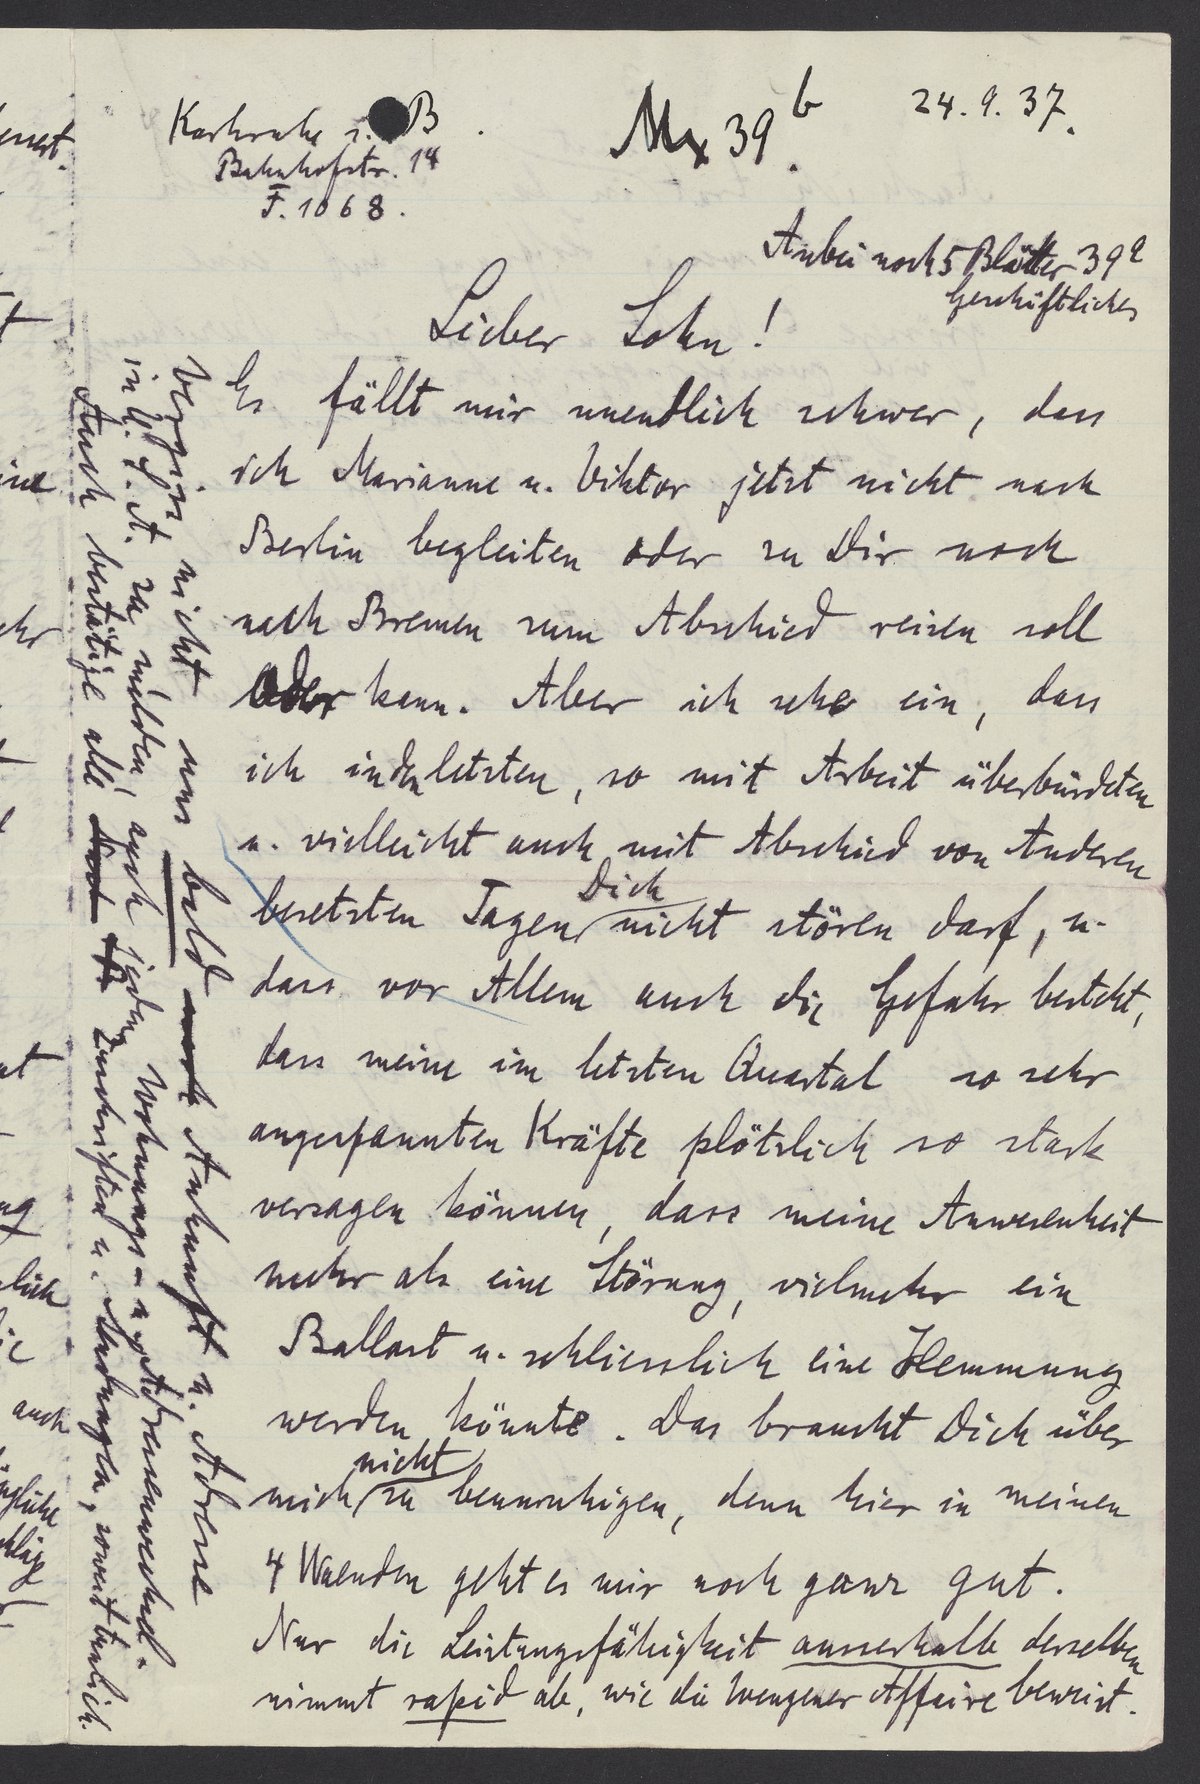 Karlsruhe i. B.
Bahnhofstr. 14
F. 1068.
Mx 39b.
24. 9. 37.
Anbei noch 5 Blätter 39a
Geschäftliches
Lieber Sohn!
Es fällt mir unendlich schwer, dass
ich Marianne u. Viktor jetzt nicht nach
Berlin begleiten oder zu Dir noch
nach Bremen zum Abschied reisen soll
oder kann. Aber ich sehe ein, dass
ich in den letzten, so mit Arbeit überbürdeten
u. vielleicht auch mit Abschied von Anderen
besetzten Tagen Dich nicht stören darf, u.
dass vor Allem auch die Gefahr besteht,
dass meine im letzten Quartal so sehr
angespannten Kräfte plötzlich so stark
versagen können, dass meine Anwesenheit
mehr als eine Störung, vielmehr ein
Ballast u. schliesslich eine Hemmung
werden könnte. Das braucht Dich über
mich nicht zu beunruhigen, denn hier in meinen
4 Waenden geht es mir noch ganz gut.
Nur die Leistungsfähigkeit ausserhalb derselben
nimmt rapid ab, wie die Wengener Affaire beweist.
Vergiss nicht uns bald noch Ankunft u. Adresse
in U.S.A. zu melden, auch jeden Wohnungs- u. Adressenwechsel.
Auch bestätige alle Zuschriften u. Meldungen, soweit tunlich.